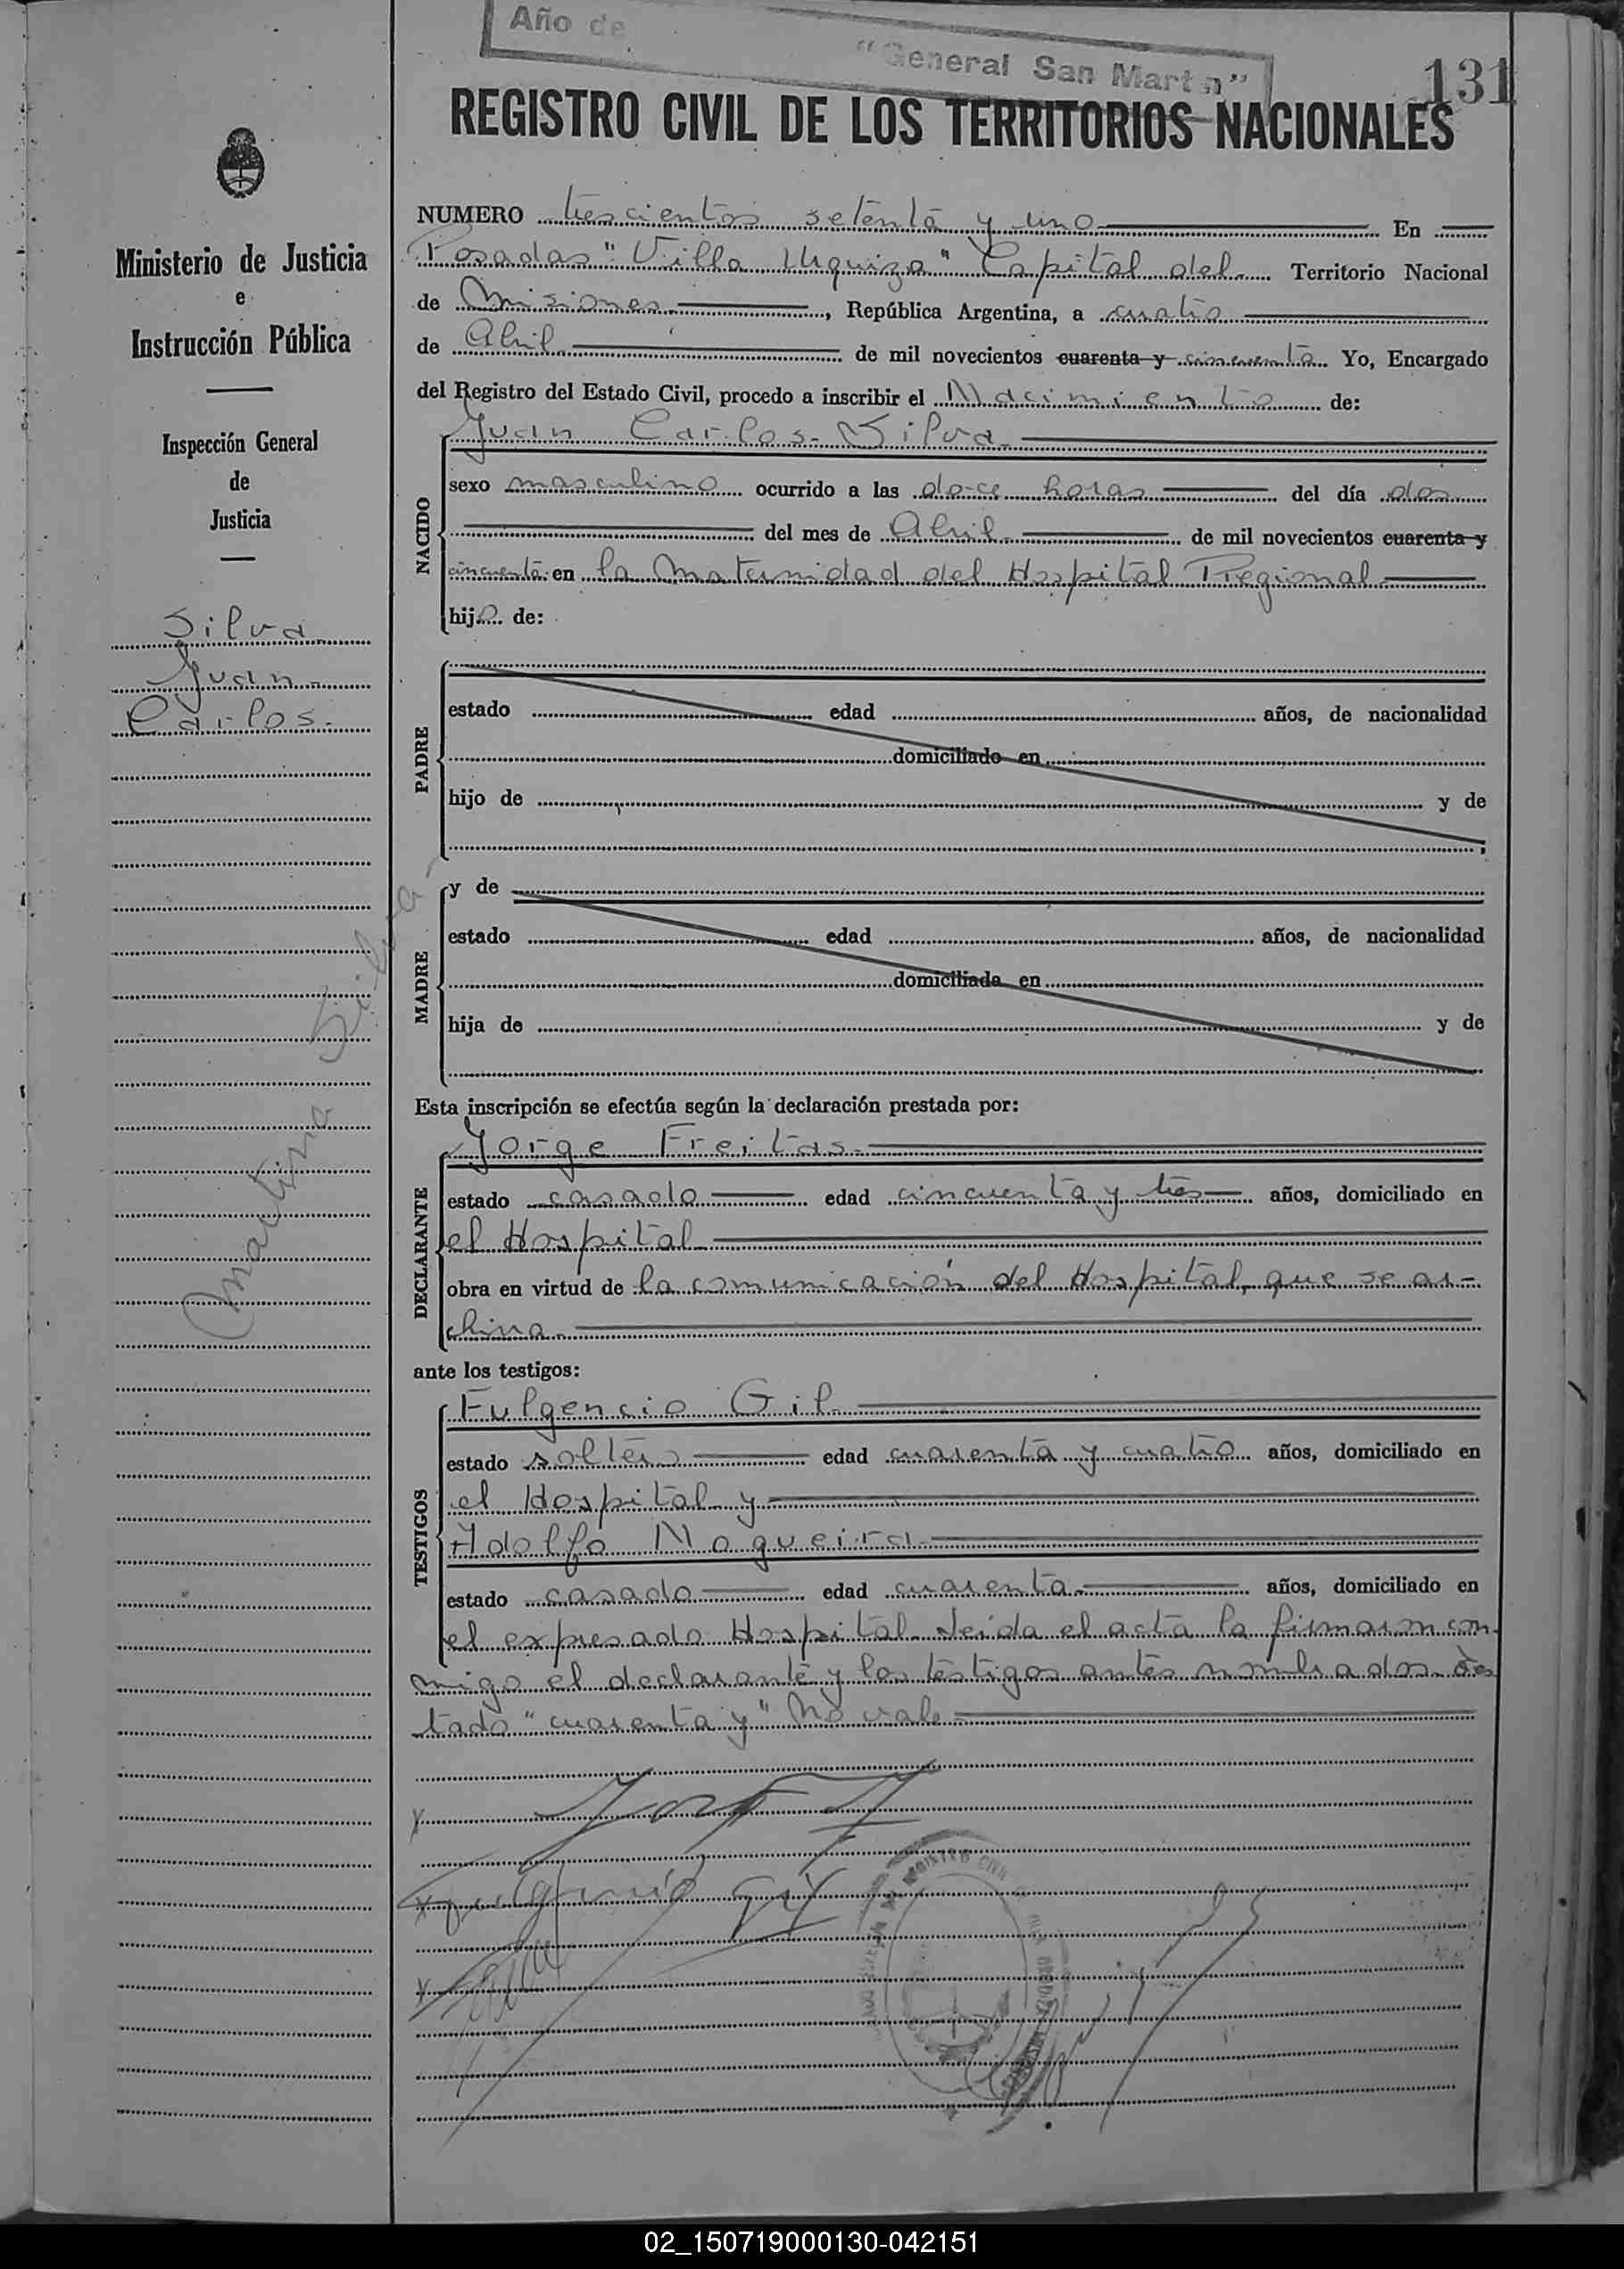 Año de
"General San Martin"
131
REGISTRO CIVIL DE LOS TERRITORIOS NACIONALES
Ministerio de Justicia
e
Instrucción Pública
Inspección General
de
Justicia
Silva
Juan
Carlos.
Martina Silva
NUMERO trescientos setenta y uno En
Posadas "Villa Urquiza" Capital del Territorio Nacional
de Misiones, República Argentina, a cuatro
de Abril de mil novecientos cuarenta y cincuenta Yo, Encargado
del Registro del Estado Civil, procedo a inscribir el Nacimiento de:
NACIDO
Juan Carlos Silva
sexo masculino ocurrido a las doce horas del día dos
del mes de Abril de mil novecientos cuarenta y
cincuenta en la Maternidad del Hospital Regional
hijo de:
PADRE
estado edad años, de nacionalidad
domiciliado en
hijo de y de
;
MADRE
y de
estado edad años, de nacionalidad
domiciliada en
hija de y de
Esta inscripción se efectúa según la declaración prestada por:
DECLARANTE
Jorge Freitas
estado casado edad cincuenta y tres años, domiciliado en
el Hospital
obra en virtud de la comunicación del Hospital, que se ar-
chiva
ante los testigos:
TESTIGOS
Fulgencio Gil
estado soltero edad cuarenta y cuatro años, domiciliado en
el Hospital y
Adolfo Nogueira
estado casado edad cuarenta años, domiciliado en
el expresado Hospital. Leida el acta la firmaron con-
migo el declarante y los testigos antes nombrados. Tes
tado "cuarenta y" No vale
Fulgencio Gil
REGISTRO CIVIL
02_150719000130-042151